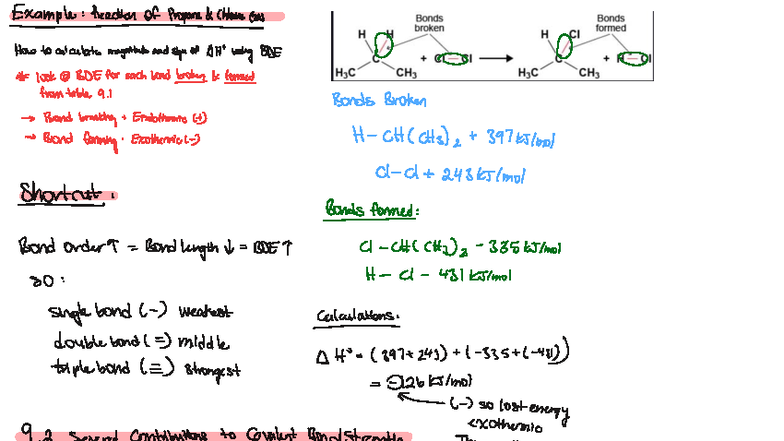 Example: Reaction of Propane & Chlorine Gas
How to calculate magnitude and sign of ΔH° using BDE
* look @ BDE for each bond broken & formed
from table 9.1
→ Bond breaking + Endothermic (+)
→ Bond forming - Exothermic (-)
Shortcut:
Bond order ↑ = Bond length ↓ = BDE ↑
so:
single bond (-) weakest
double bond (=) middle
triple bond (≡) strongest
Bonds
broken
Bonds
formed
H H + Cl-Cl → H Cl + H-Cl
H₃C CH₃ H₃C CH₃
Bonds Broken
H-CH(CH₃)₂ + 397 kJ/mol
Cl-Cl + 243 kJ/mol
Bonds formed:
Cl-CH(CH₃)₂ - 335 kJ/mol
H-Cl - 431 kJ/mol
Calculations:
ΔH° = (397 + 243) + (-335 + (-431))
= -126 kJ/mol
(-) so lost energy
exothermic
9.2 Several Contributions to Covalent Bond Strengths